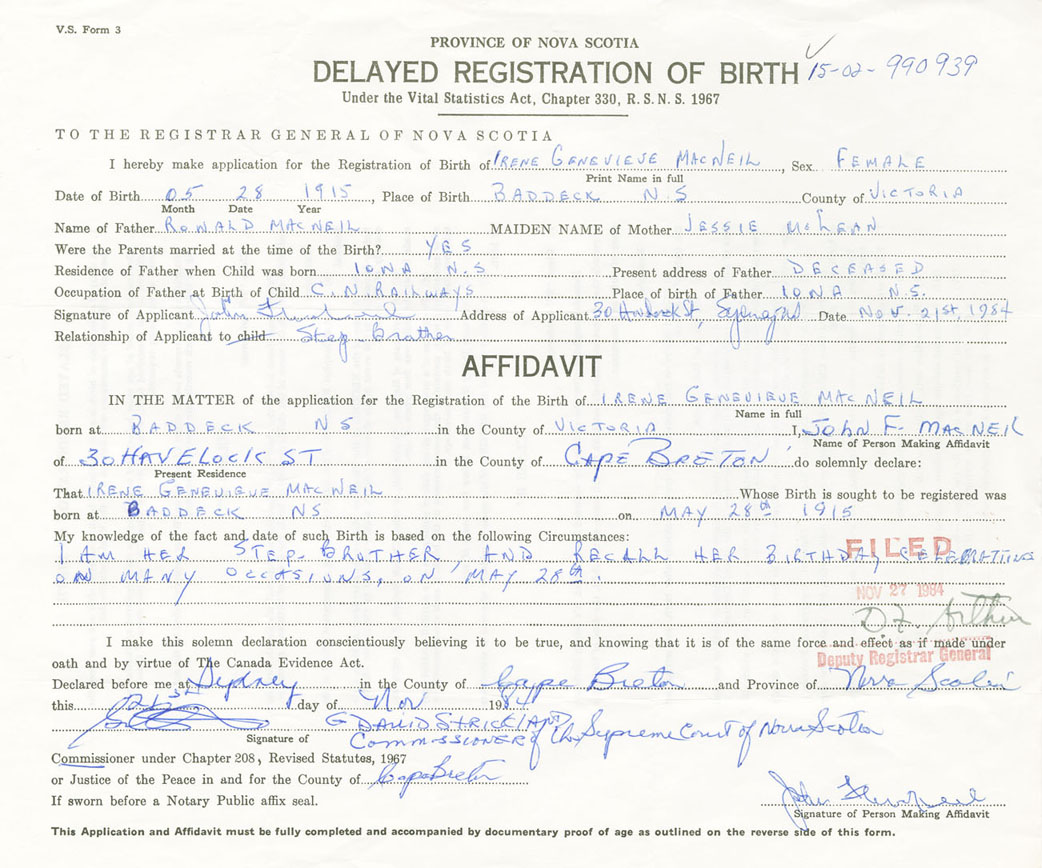 V.S. Form 3
PROVINCE OF NOVA SCOTIA
DELAYED REGISTRATION OF BIRTH 15-02-990939
Under the Vital Statistics Act, Chapter 330, R.S.N.S. 1967
TO THE REGISTRAR GENERAL OF NOVA SCOTIA
I hereby make application for the Registration of Birth of IRENE GENEVIEVE MACNEIL, Sex FEMALE
Print Name in full
Date of Birth 05 28 1915, Place of Birth BADDECK N S County of VICTORIA
Month Date Year
Name of Father RONALD MACNEIL MAIDEN NAME of Mother JESSIE McLEAN
Were the Parents married at the time of the Birth? YES
Residence of Father when Child was born IONA N.S Present address of Father DECEASED
Occupation of Father at Birth of Child C.N. RAILWAYS Place of birth of Father IONA N.S.
Signature of Applicant John Address of Applicant 30 St, Date Nov. 21st, 1984
Relationship of Applicant to child Step Brother
AFFIDAVIT
IN THE MATTER of the application for the Registration of the Birth of IRENE GENEVIEVE MACNEIL
Name in full
born at BADDECK NS in the County of VICTORIA I, JOHN F. MACNEIL
Name of Person Making Affidavit
of 30 HAVELOCK ST in the County of CAPE BRETON do solemnly declare:
Present Residence
That IRENE GENEVIEVE MACNEIL Whose Birth is sought to be registered was
born at BADDECK NS on MAY 28th 1915
My knowledge of the fact and date of such Birth is based on the following Circumstances:
I AM HER STEP-BROTHER, AND RECALL HER BIRTHDAY CELEBRATIONS
ON MANY OCCASIONS, ON MAY 28th.
FILED
NOV 27 1984
D.F. Arthur
I make this solemn declaration conscientiously believing it to be true, and knowing that it is of the same force and effect as if made under
Deputy Registrar General
oath and by virtue of The Canada Evidence Act.
Declared before me at Sydney in the County of Cape Breton and Province of Nova Scotia
this day of Nov 1984
G DAVID STRICKLAND
Signature of Commissioner of the Supreme Court of Nova Scotia
Commissioner under Chapter 208, Revised Statutes, 1967
or Justice of the Peace in and for the County of Cape Breton
If sworn before a Notary Public affix seal.
John
Signature of Person Making Affidavit
This Application and Affidavit must be fully completed and accompanied by documentary proof of age as outlined on the reverse side of this form.